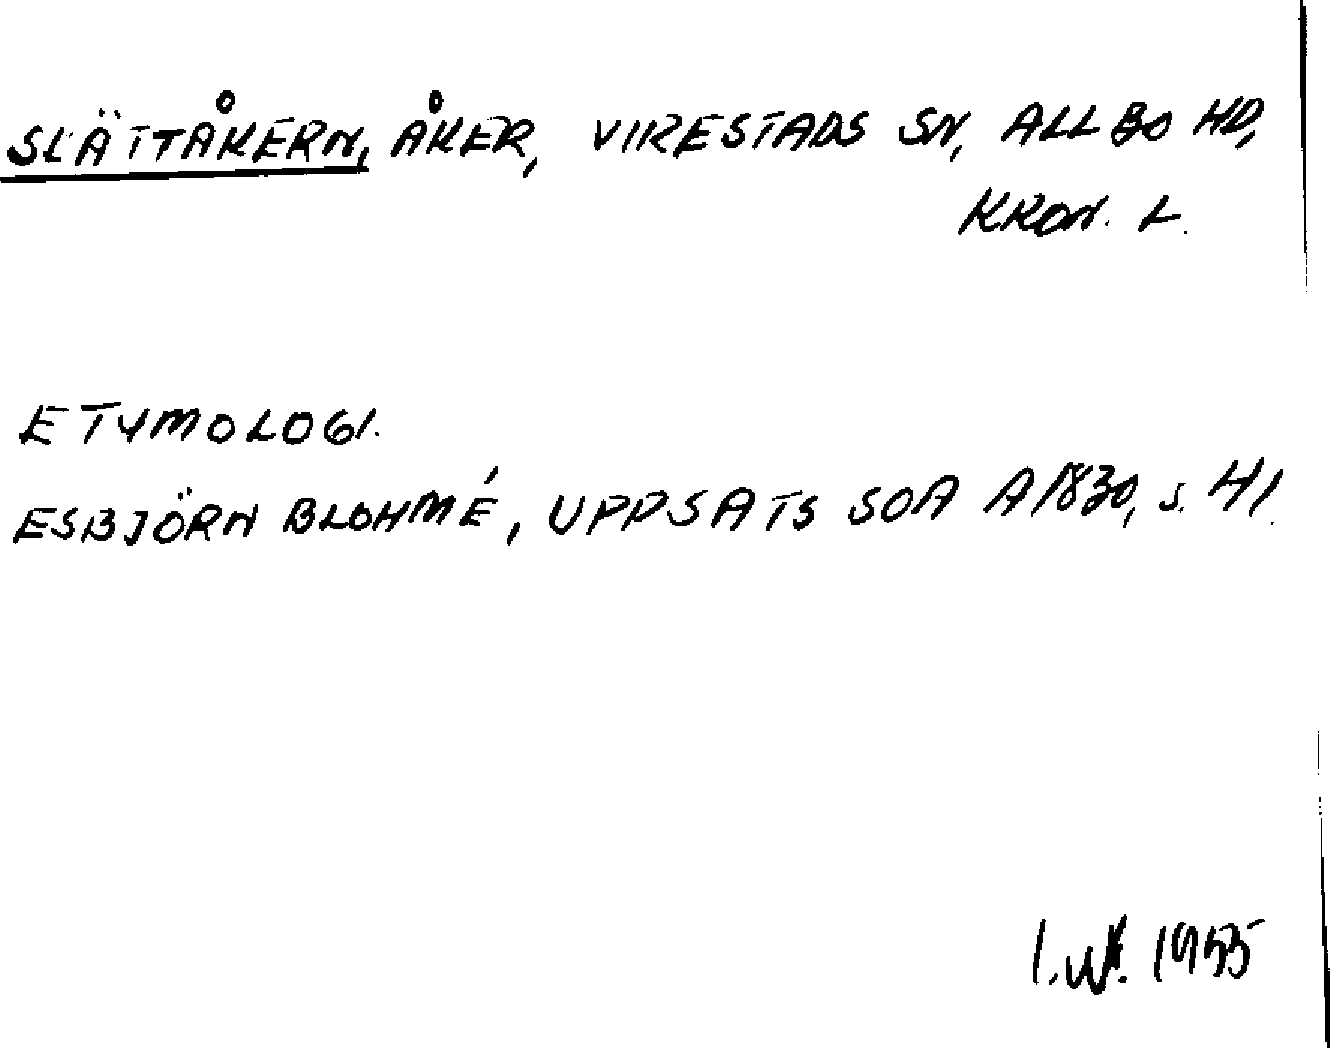 SLÄTTÅKERN, ÅKER, VIRESTADS SN, ALLBO HD,
KRON. L.
ETYMOLOGI.
ESBJÖRN BLOHMÉ, UPPSATS SOA A1830, S. 41.
1955